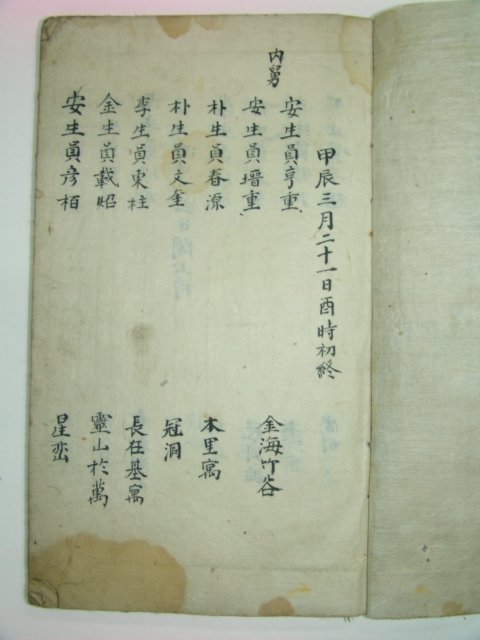 甲辰三月二十一日酉時初終
安生員亨重
內舅
安生員瑨重 金海竹谷
朴生員春源 本里寓
朴生員文奎 冠洞
李生員東柱 長在基寓
金生員載炤 靈山於萬
安生員彦栢 星巒